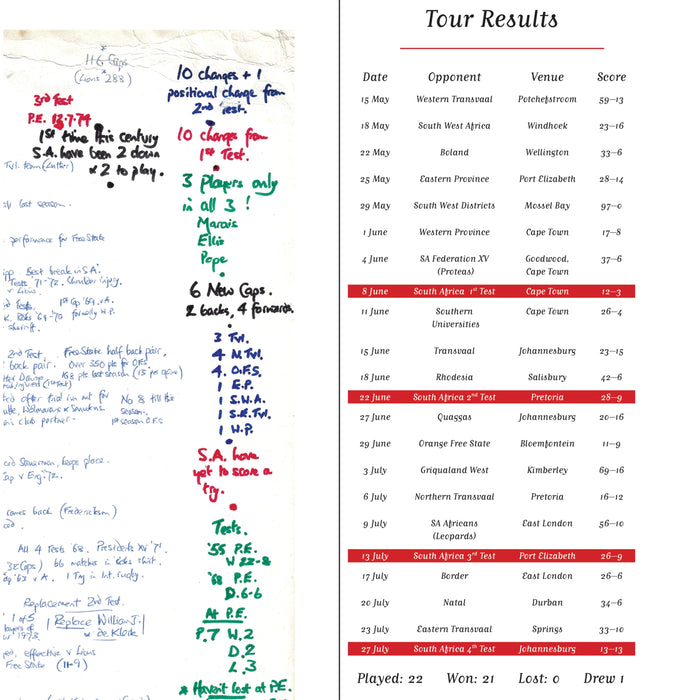 116 Caps
(Lions 288)
3rd Test
P.E. 13.7.74
1st time this century
S.A. have been 2 down
& 2 to play.
last season.
performance for Free State
Best break in S.A.
Tests, 71-72. Shoulder injury.
v Lions.
Tests. 1st Cap '69 v A.
'69-70 formerly W.P.
2nd Test. Free State half back pair.
back pair. Over 350 pts for O.F.S.
158 pts last season (15 per game)
after trial inj. not for No 8 till this
season.
club partner. 1st season O.F.S.
keeps place.
v Eng. '72.
comes back (Fredrickson)
All 4 Tests '68. Presidents XV '71.
66 matches in Boks shirt.
v A. 1 Try in Int. rugby.
Replacement 2nd Test.
1 of 5 Replace William J.
players of & de Klerk
effective v Lions
Free State (11-9)
10 changes + 1
positional change from
2nd Test.
10 changes from
1st Test.
3 Players only
in all 3 !
Marais
Ellis
Pope
6 New Caps.
2 backs, 4 forwards.
3 Tvl.
4 N.Tvl.
4 O.F.S.
1 E.P.
1 S.W.A.
1 S.E.Tvl.
1 W.P.
S.A. have
yet to score a
try.
Tests.
'55 P.E.
W 22-8
'68 P.E.
D.6-6
At P.E.
P.7 W.2
D.2
L.3
* Haven't lost at P.E.
Tour Results
Date Opponent Venue Score
15 May Western Transvaal Potchefstroom 59–13
18 May South West Africa Windhoek 23–16
22 May Boland Wellington 33–6
25 May Eastern Province Port Elizabeth 28–14
29 May South West Districts Mossel Bay 97–0
1 June Western Province Cape Town 17–8
4 June SA Federation XV Goodwood, 37–6
(Proteas) Cape Town
8 June South Africa 1st Test Cape Town 12–3
11 June Southern Cape Town 26–4
Universities
15 June Transvaal Johannesburg 23–15
18 June Rhodesia Salisbury 42–6
22 June South Africa 2nd Test Pretoria 28–9
27 June Quaggas Johannesburg 20–16
29 June Orange Free State Bloemfontein 11–9
3 July Griqualand West Kimberley 69–16
6 July Northern Transvaal Pretoria 16–12
9 July SA Africans East London 56–10
(Leopards)
13 July South Africa 3rd Test Port Elizabeth 26–9
17 July Border East London 26–6
20 July Natal Durban 34–6
23 July Eastern Transvaal Springs 33–10
27 July South Africa 4th Test Johannesburg 13–13
Played: 22 Won: 21 Lost: 0 Drew 1